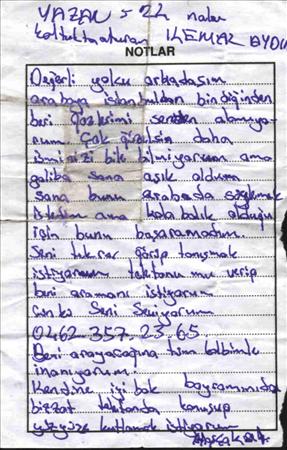 YAZAN = 22 nolu
koltukta oturan KEMAL AYDIN
NOTLAR
Değerli yolcu arkadaşım
arabaya istanbuldan bindiğinden
beri gözlerimi senden alamıyo-
rum Çok güzelsin daha
isminizi bile bilmiyorum ama
galiba sana aşık oldum
sana bunu arabada söylemek
istedim ama kalabalık olduğu
için bunu başaramadım.
Seni tekrar görüp tanışmak
istiyorum telefonumu verip
beni aramanı istiyorum
çünkü Seni Seviyorum
0462.357.23.65
Beni arayacağına tüm kalbimle
inanıyorum!
Kendine iyi bak bayramınızıda
bizzat telefonda konuşup
yüzyüze kutlamak istiyorum